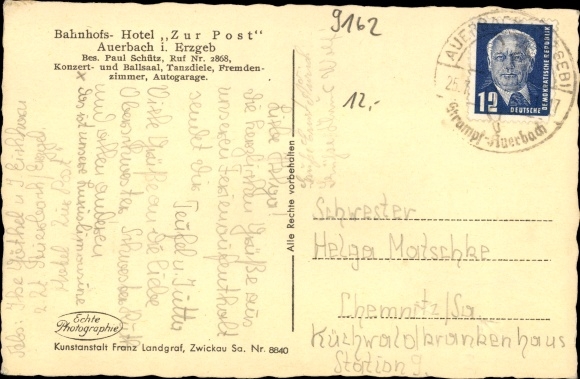 Bahnhofs- Hotel „Zur Post"
Auerbach i. Erzgeb
Bes. Paul Schütz, Ruf Nr. 2868,
Konzert- und Ballsaal, Tanzdiele, Fremden-
zimmer, Autogarage.
9162
12,-
AUERBACH (ERZGEBI)
Strumpf-Auerbach
12
DEUTSCHE
DEMOKRATISCHE REPUBLIK
Liebe Helga!
Die herzlichsten Grüße aus
unserem Ferienaufenthalt
sendet die Teufel u. Jutta
Viele Grüße an die liebe
Oberschwester, Schwester Ruth
und allen anderen
x das ist unsere
Abs: Ilse Güthel u.
z. Zt. Auerbach/Erzgeb.
Hotel Zur Post
Alle Rechte vorbehalten
Schwester
Helga Matschke
Chemnitz/Sa.
Küchwaldkrankenhaus
Station 9.
Echte
Photographie
Kunstanstalt Franz Landgraf, Zwickau Sa. Nr. 8840